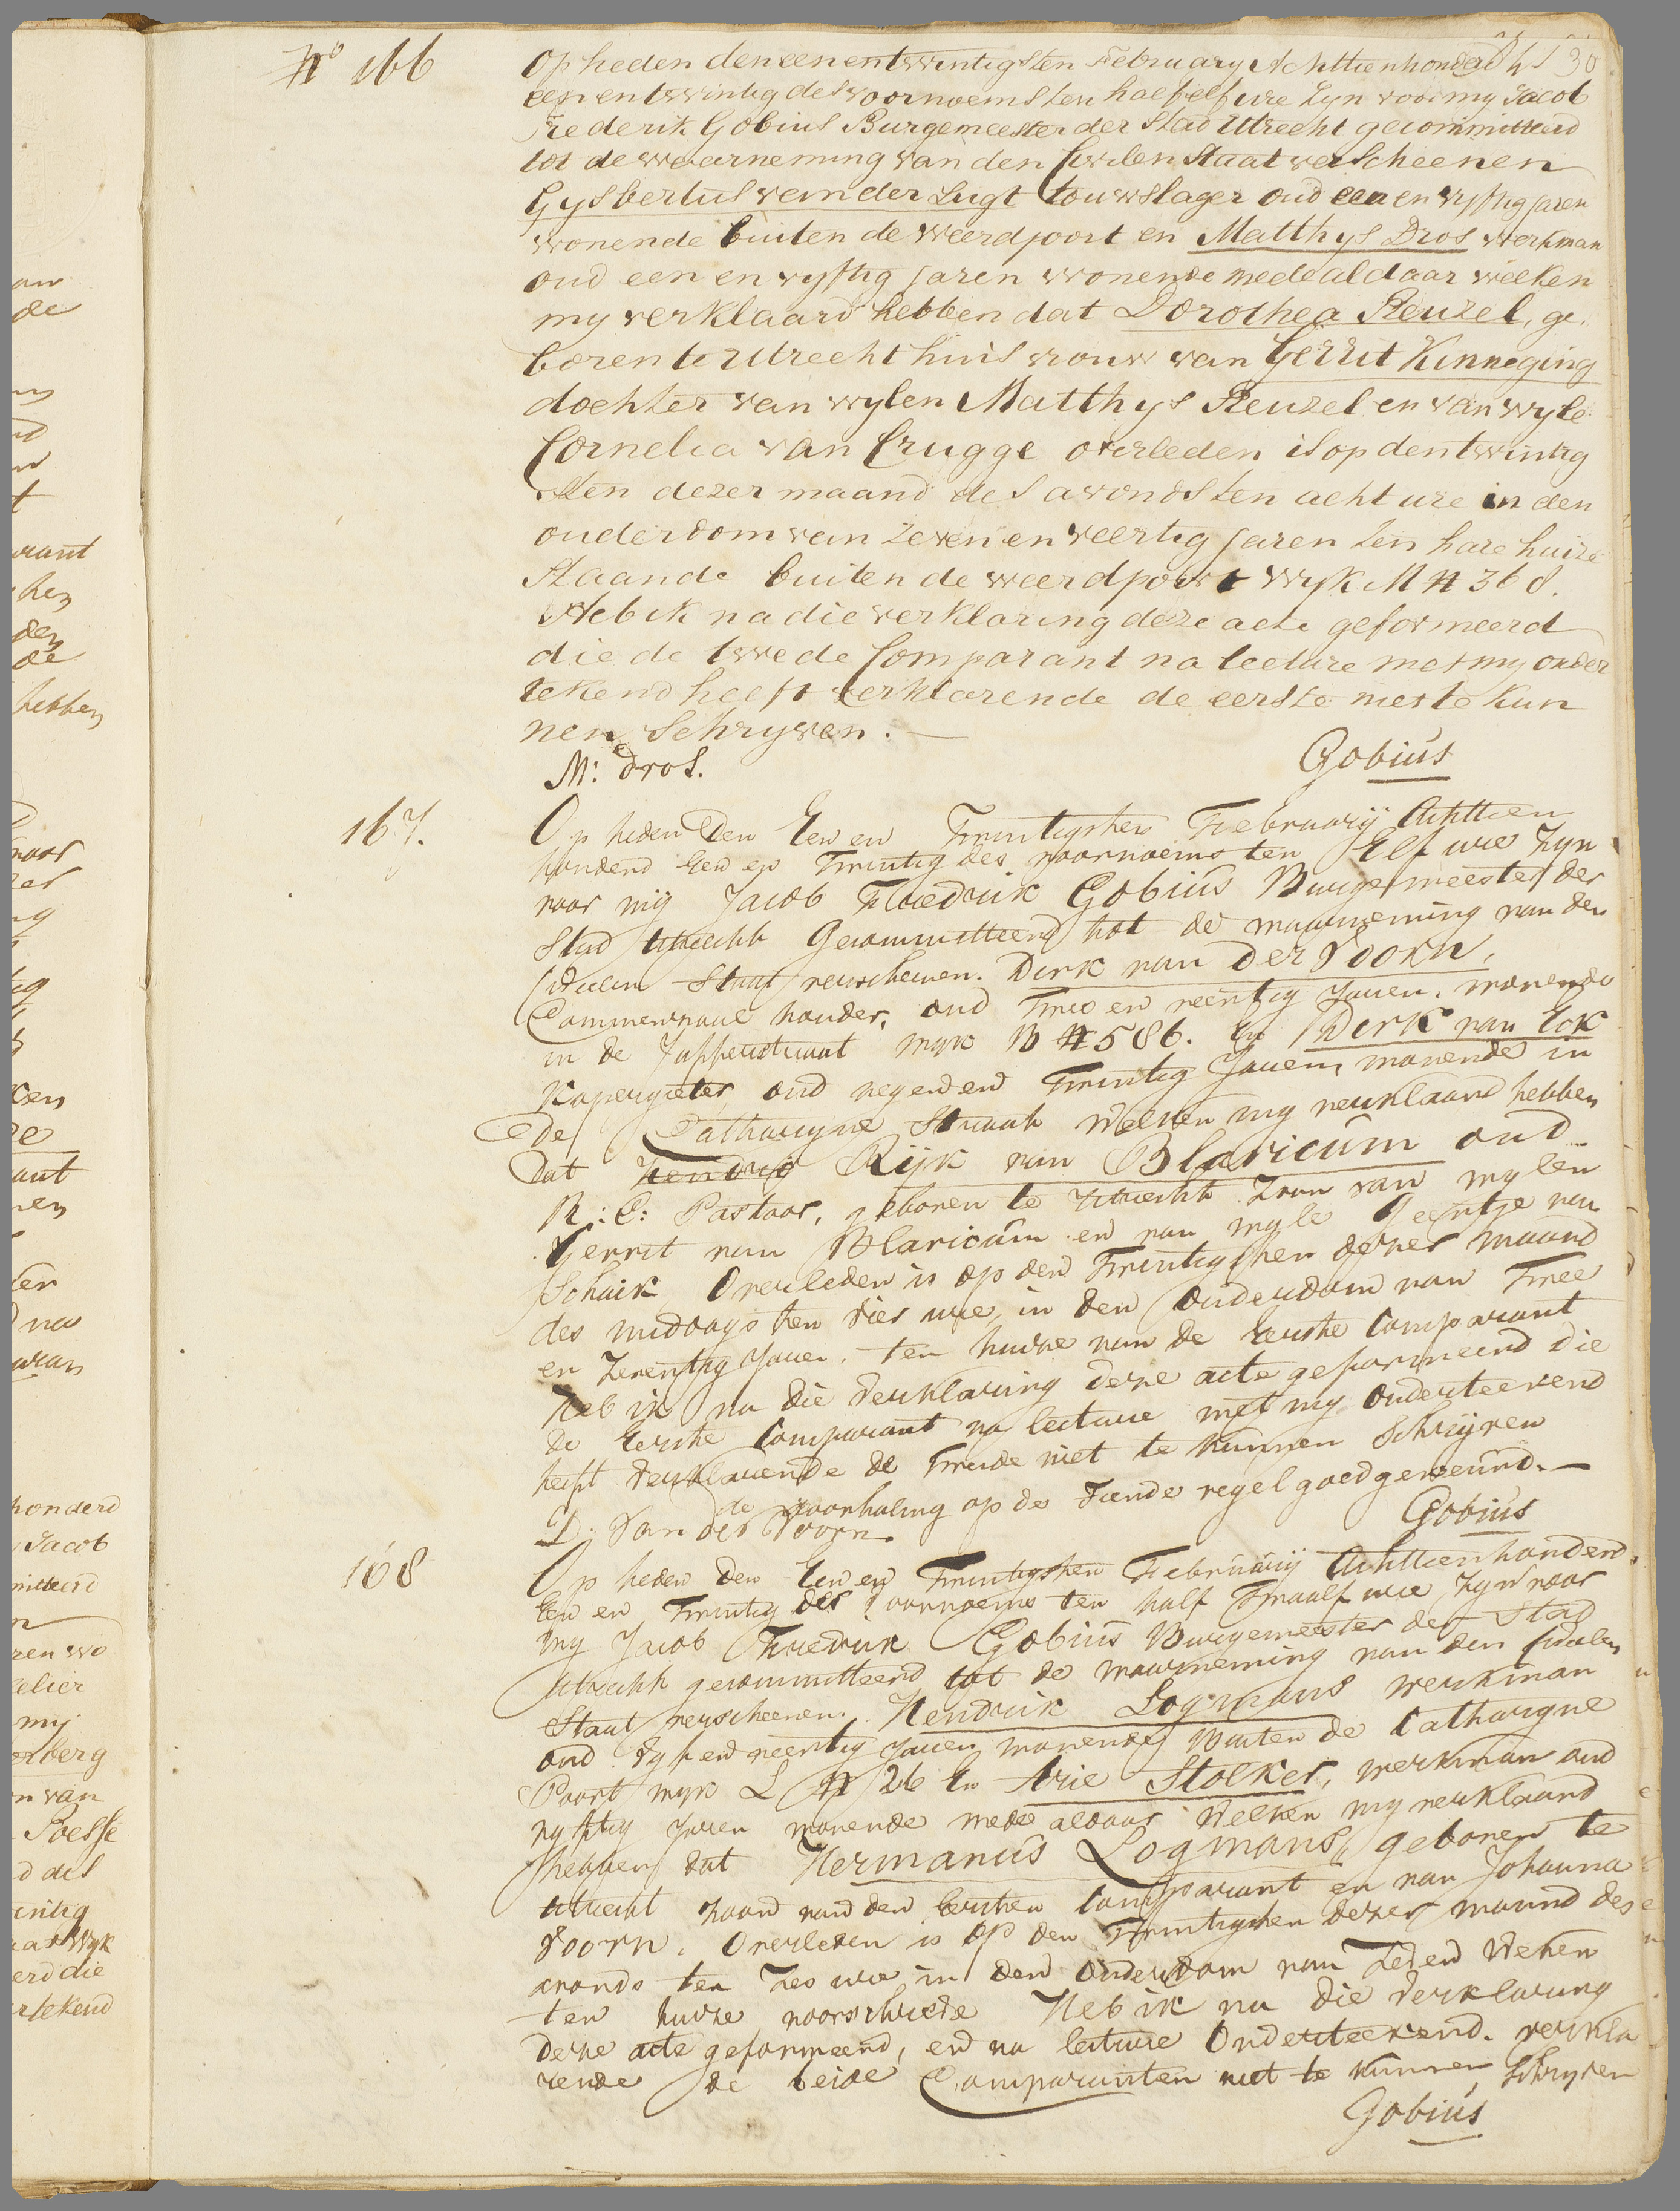 No 166
Op heden den eenentwintigsten February Achttienhonderd
eenentwintig des voornoems ten half elf ure zyn voor my Jacob
Frederik Gobius Burgemeester der Stad Utrecht gecommitteerd
tot de waarneming van den Civilen Staat verscheenen
Gysbertus van der Lugt touwslager oud een en vyftig jaren
wonende buiten de weerdpoort en Matthys Dros werkman
oud een en vyftig jaren wonende mede aldaar welken
my verklaard hebben dat Dorothea Reuzel, ge
boren te Utrecht huisvrouw van Gerrit Kinneging
dochter van wylen Matthys Reuzel en van wyle
Cornelia van Brugge overleden is op den twintig
sten dezer maand des avonds ten acht ure in den
ouderdom van zeven en veertig jaren ten hare huize
staande buiten de weerdpoort wyk M N 368.
Heb ik na die verklaring deze acte geformeerd
die de twede Comparant na lecture met my onder
tekend heeft verklarende de eerste niet te kun
nen Schryven.
M: Dros.
Gobius
167.
Op heden Den Een en Twintigsten February Achttien
honderd Een en Twintig des voornoems ten Elf ure Zyn
voor mij Jacob Fredrik Gobius Burgemeester der
Stad Utrecht Gecommitteerd tot de waarneming van den
Civilen Staat verscheenen. Dirk van Der Voorn,
Commensaal houder, oud Twee en veertig Jaren, wonende
in de Jufferstraat wyk B N 586. En Dirk van Eck
Kopergieter oud negen en Twintig Jaren, wonende in
De Catharyne Straat Welken my verklaard hebben
Dat Hendrik Rijk van Blaricum oud
R: C: Pastoor, geboren te Utrecht Zoon van wylen
Gerrit van Blaricum en van wyle Geertje van
Schaik Overleden is op den Twintigsten dezer maand
des middags ten vier ure, in den Ouderdom van Twee
en Zeventig Jaren. ten huize van de Eerste Comparant
Heb ik na die Verklaring deze acte geformeerd die
de Eerste Comparant na lecture met my Onderteekend
heeft Verklarende de Tweede niet te kunnen Schrijven
de doorhaling op de Tiende regel goedgekeurd.
D: Van der Voorn
Gobius
168
Op heden Den Een en Twintigsten February Achttienhonderd
Een en Twintig des voornoems ten half Twaalf ure Zyn voor
my Jacob Fredrik Gobius Burgemeester der Stad
Utrecht gecommitteerd tot de waarneming van den Civilen
Staat verscheenen. Hendrik Logmans werkman
oud Vyf en veertig Jaren wonende Buiten de Catharyne
Poort wyk L N 26 En Arie Stolker, werkman oud
vyftig Jaren wonende mede aldaar Welken my verklaard
hebben dat Hermanus Logmans, geboren te
Utrecht Zoon van den Eersten Comparant en van Johanna
Voorn. Overleden is op den Twintigsten dezer maand des
avonds ten Zes ure in den Ouderdom van Zeven Weken
ten huize voorschreve Heb ik na die Verklaring
Deze acte geformeerd, en na lecture Onderteekend. verkla
rende de beide Comparanten niet te kunnen Schryven
Gobius